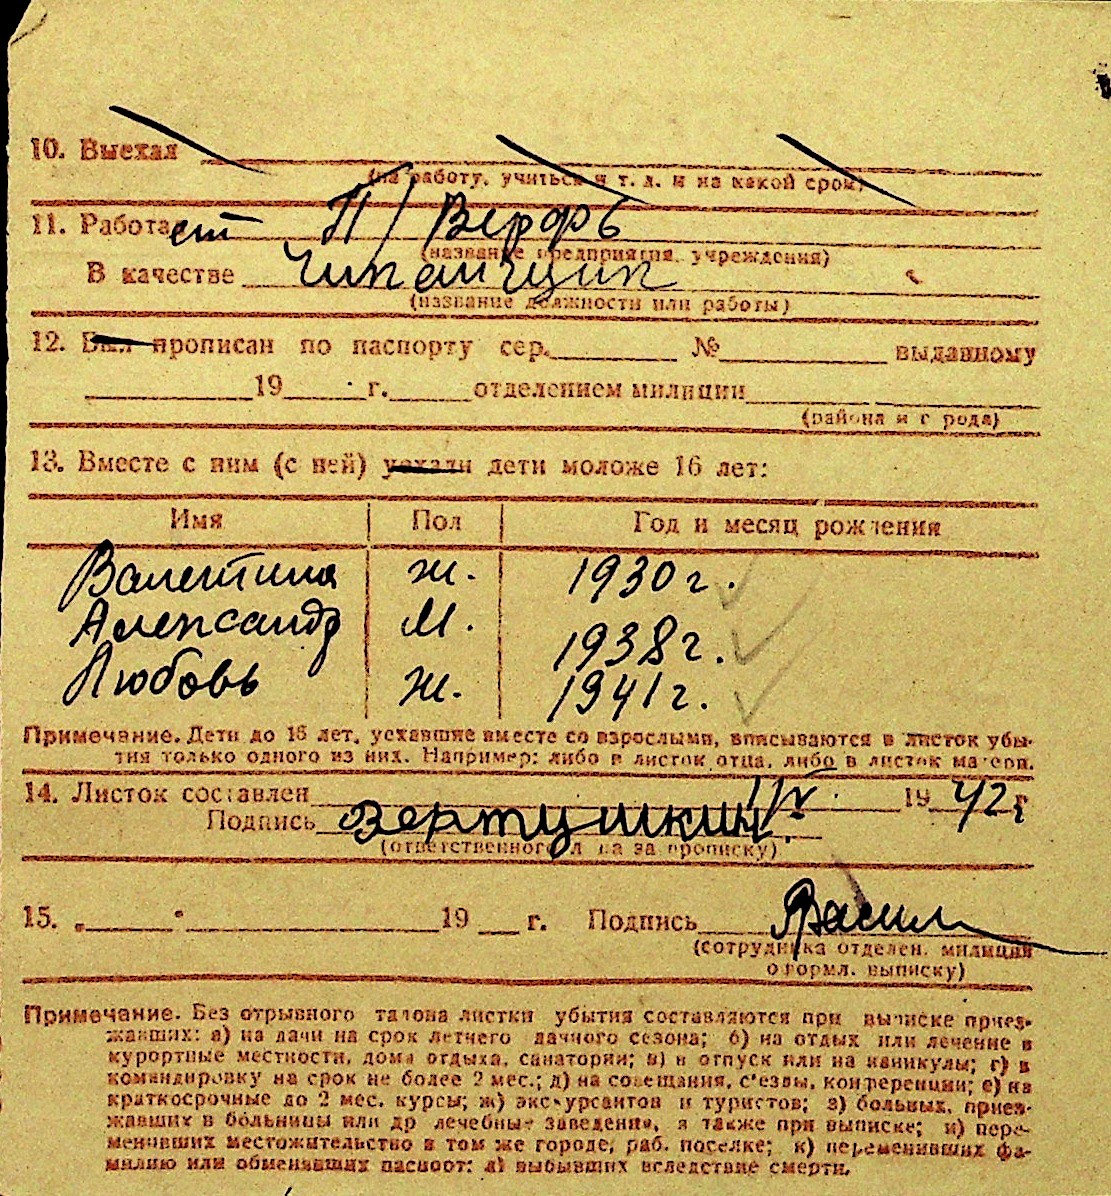 10. Выехал
(на работу, учиться и т. д. и на какой срок)
11. Работает П/Верфь
(название предприятия, учреждения)
В качестве Чипанщик
(название должности или работы)
12. Был прописан по паспорту сер. № выданному
19 г. отделением милиции
(района и города)
13. Вместе с ним (с ней) уехали дети моложе 16 лет:
Имя Пол Год и месяц рождения
Валентина ж. 1930 г.
Александр М. 1938 г.
Любовь ж. 1941 г.
Примечание. Дети до 16 лет, уехавшие вместе со взрослыми, вписываются в листок убы-
тия только одного из них. Например: либо в листок отца, либо в листок матери.
14. Листок составлен 1/IV. 1942 г
Подпись Вертушкин.
(ответственного лица за прописку)
15. „ " 19 г. Подпись
(сотрудника отделен. милиции
оформл. выписку)
Примечание. Без отрывного талона листки убытия составляются при выписке приез-
жавших: а) на дачи на срок летнего дачного сезона; б) на отдых или лечение в
курортные местности, дома отдыха, санатории; в) в отпуск или на каникулы; г) в
командировку на срок не более 2 мес.; д) на совещания, с'езды, конференции; е) на
краткосрочные до 2 мес. курсы; ж) экскурсантов и туристов; з) больных, приез-
жавших в больницы или др лечебные заведения, а также при выписке; и) пере-
менивших местожительство в том же городе, раб. поселке; к) переменивших фа-
милию или обменявших паспорт; л) выбывших вследствие смерти.